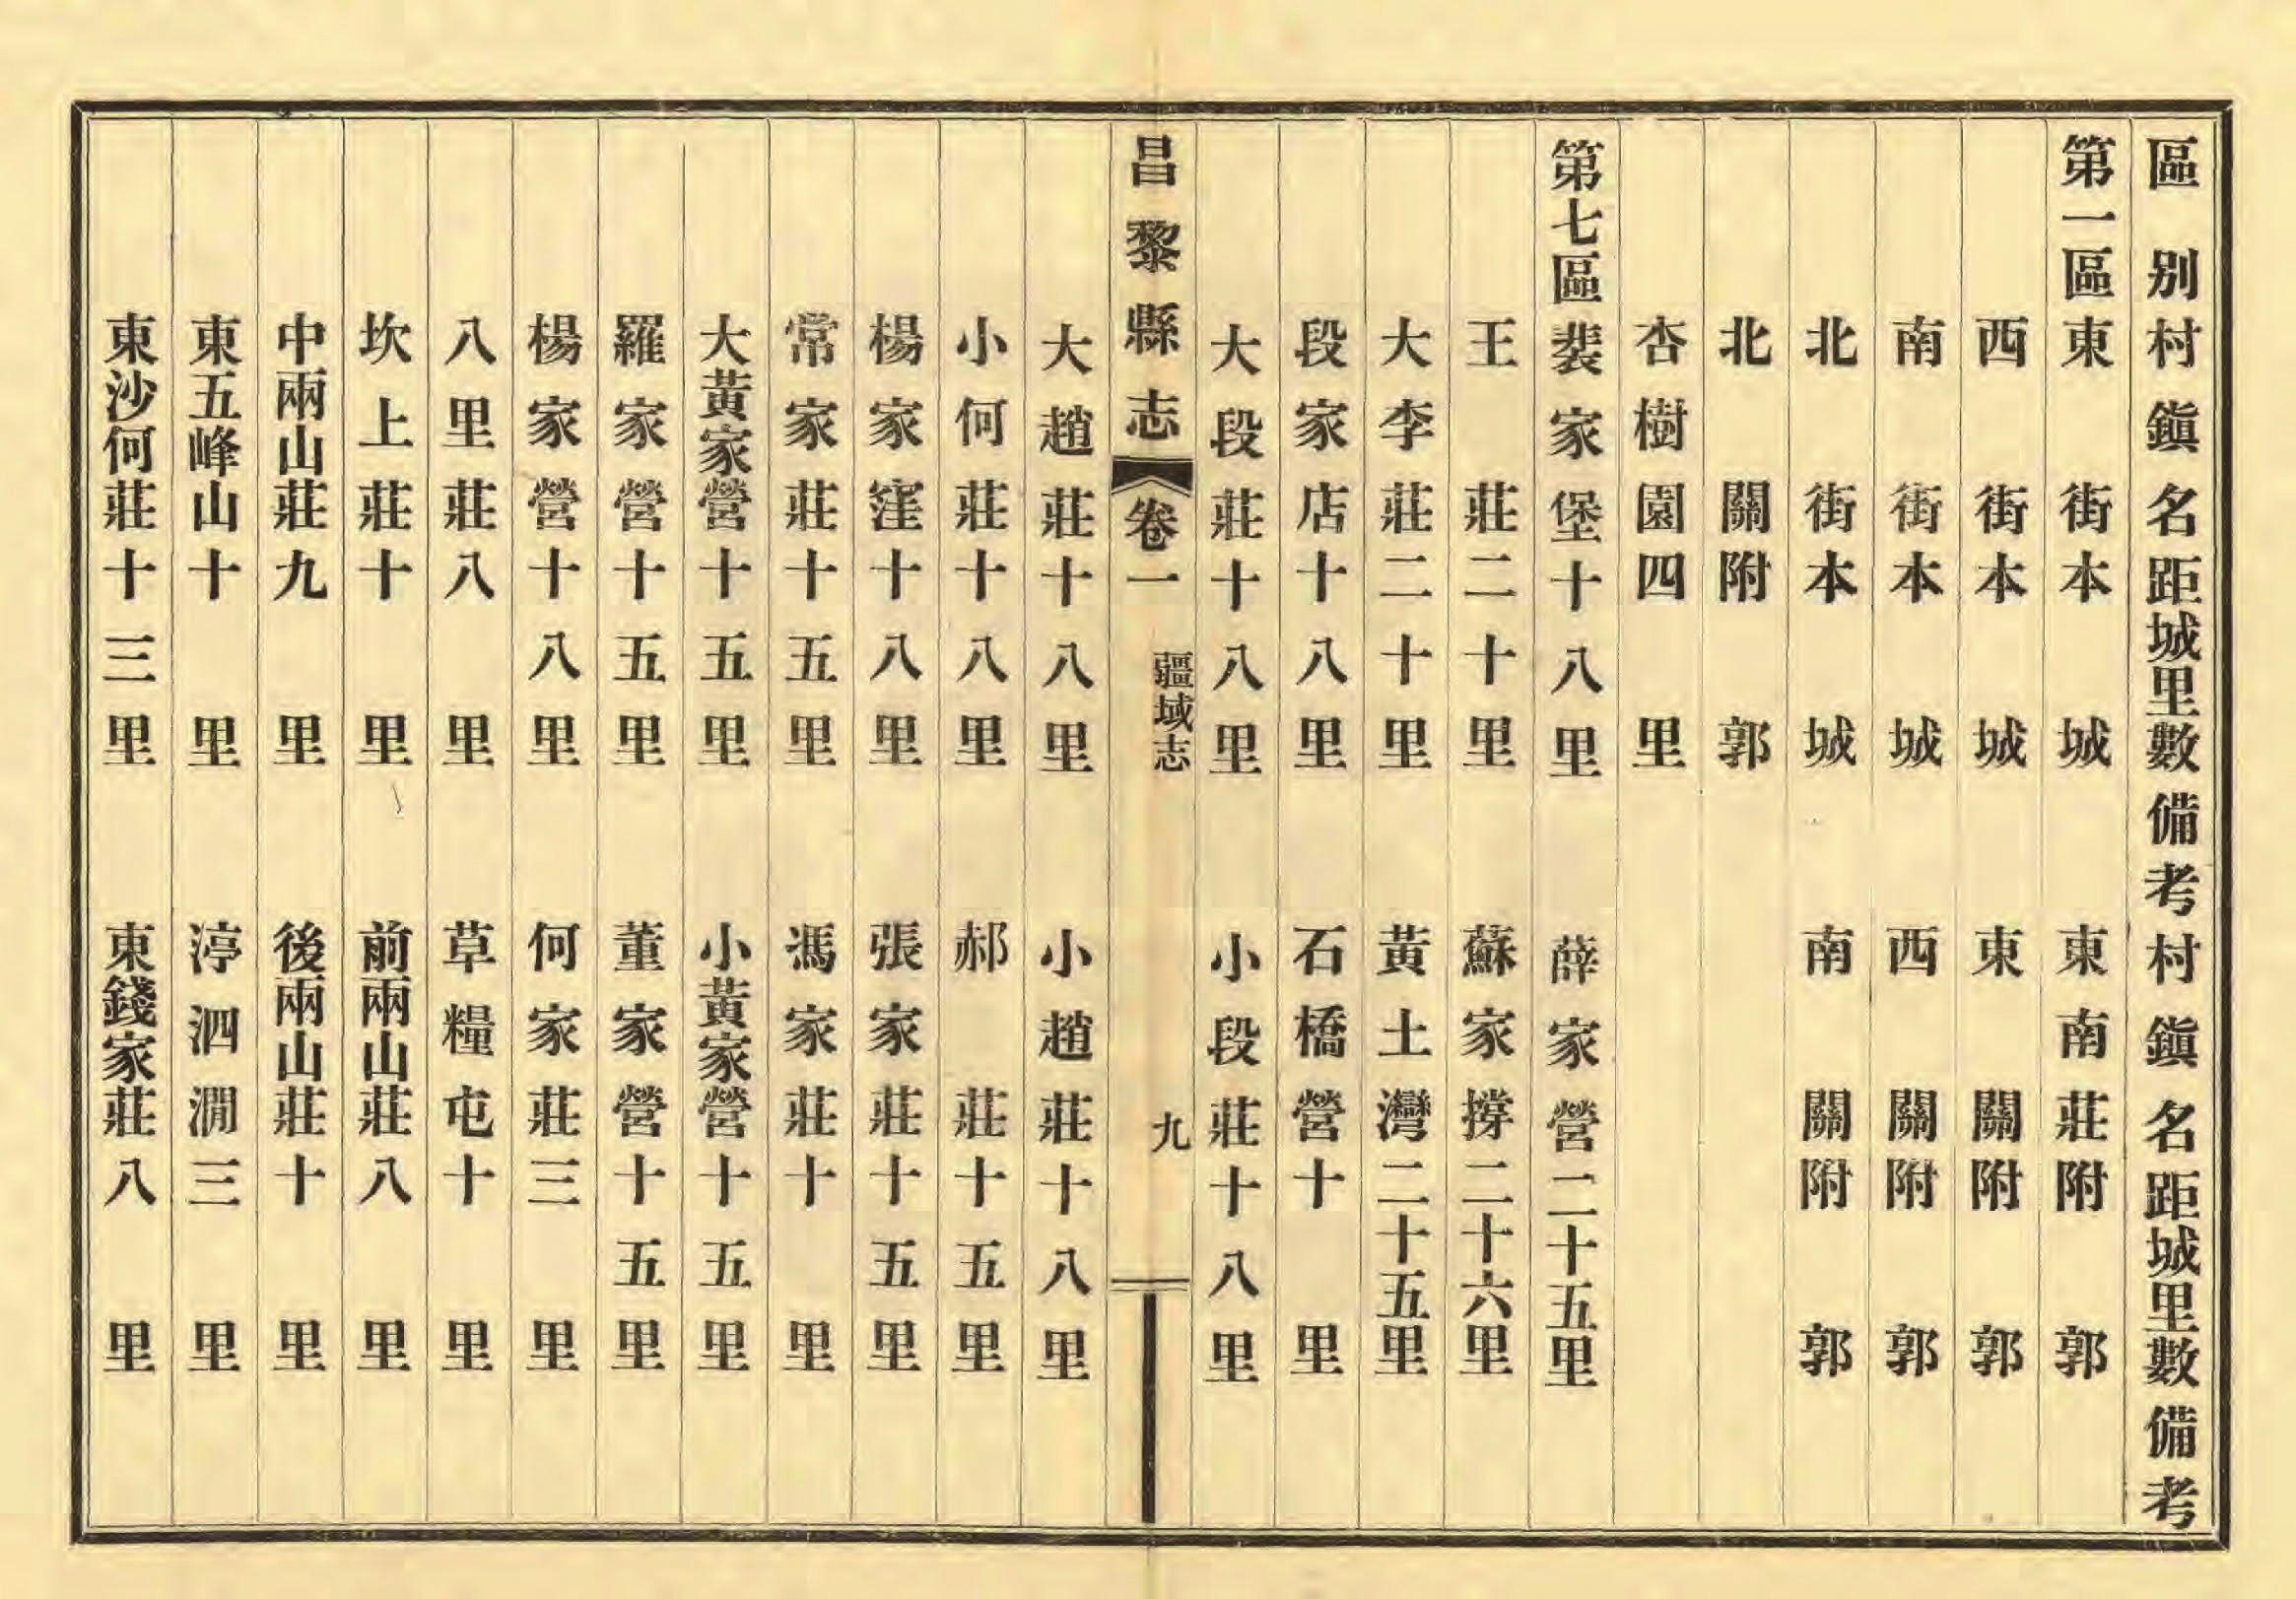 區別村鎭名距城里數備考村鎭名距城里數備考
第一區東街本城東南莊附郭
西街本城東關附郭
南街本城西關附郭
北街本城南關附郭
北關附郭
杏樹園四里
第七區裴家堡十八里薛家營二十五里
王莊二十里蘇家撐二十六里
大李莊二十里黃土灣二十五里
段家店十八里石橋營十里
大段莊十八里小段莊十八里
昌黎縣志卷一疆域志九
大趙莊十八里小趙莊十八里
小何莊十八里郝莊十五里
楊家窪十八里張家莊十五里
常家莊十五里馮家莊十里
大黃家營十五里小黃家營十五里
羅家營十五里董家營十五里
楊家營十八里何家莊三里
八里莊八里草糧屯十里
坎上莊十里前兩山莊八里
中兩山莊九里後兩山莊十里
東五峰山十里渟泗澗三里
東沙何莊十三里東錢家莊八里